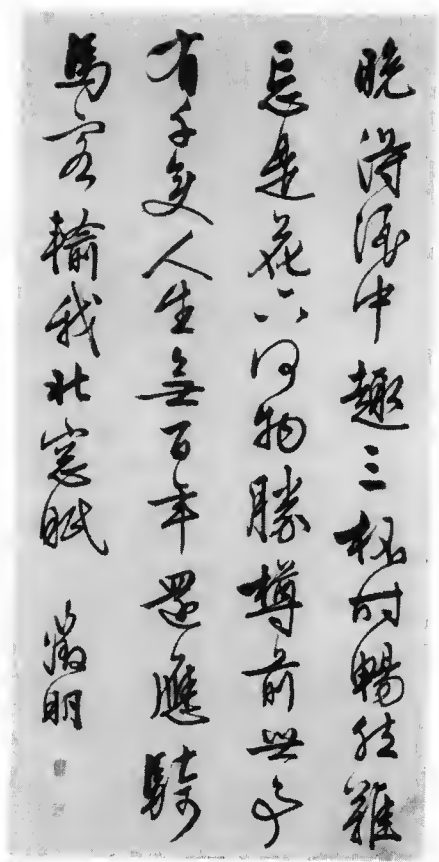 晚得酒中趣三杯時暢然難
忘是花下何物勝樽前世事
有千變人生無百年還應騎
馬客輸我北窓眠 徵明